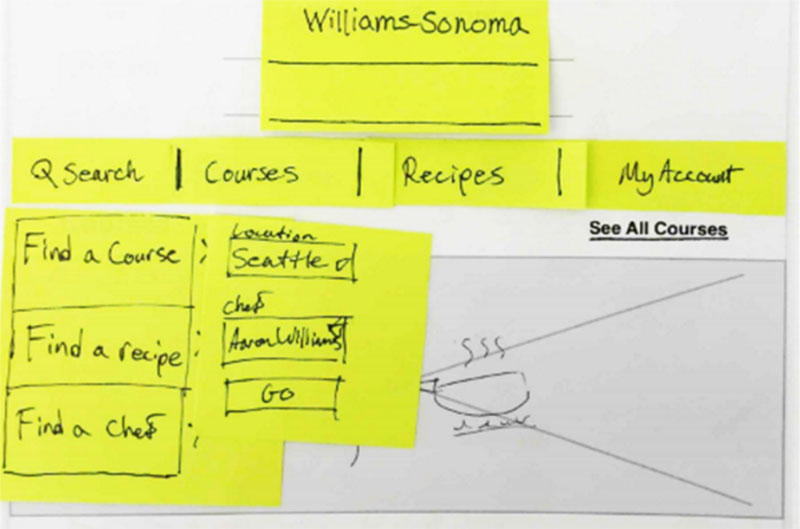 Williams-Sonoma
Search | Courses | Recipes | My Account
See All Courses
Find a Course
Find a recipe
Find a Chef
Location
Seattle
Chef
Aaron Williams
GO